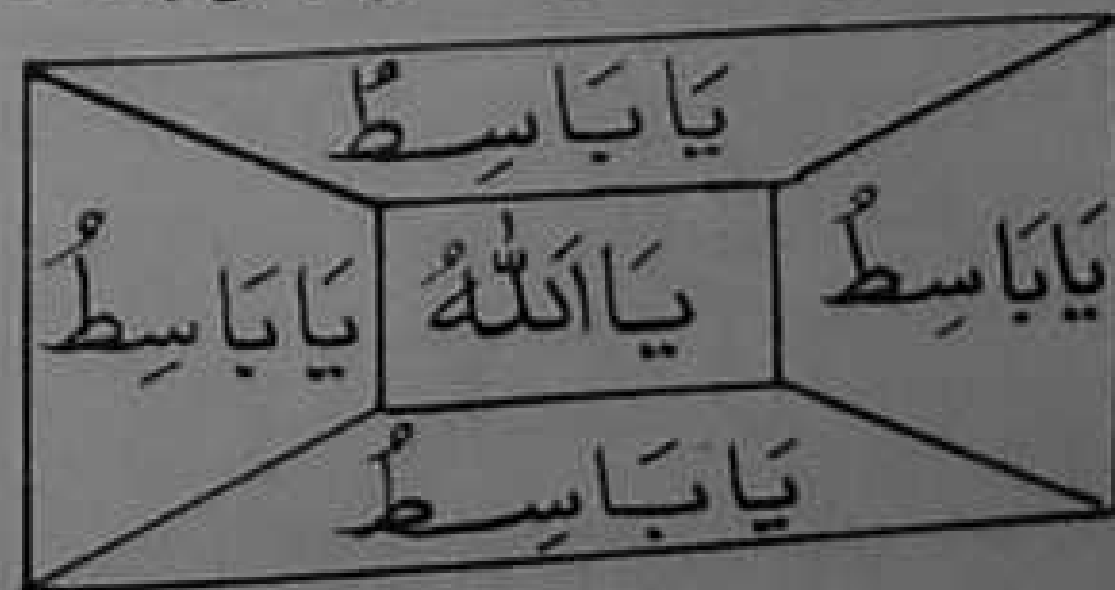 يَا بَاسِطُ
يَا بَاسِطُ
يَا اَللّٰهُ
يَا بَاسِطُ
يَا بَاسِطُ